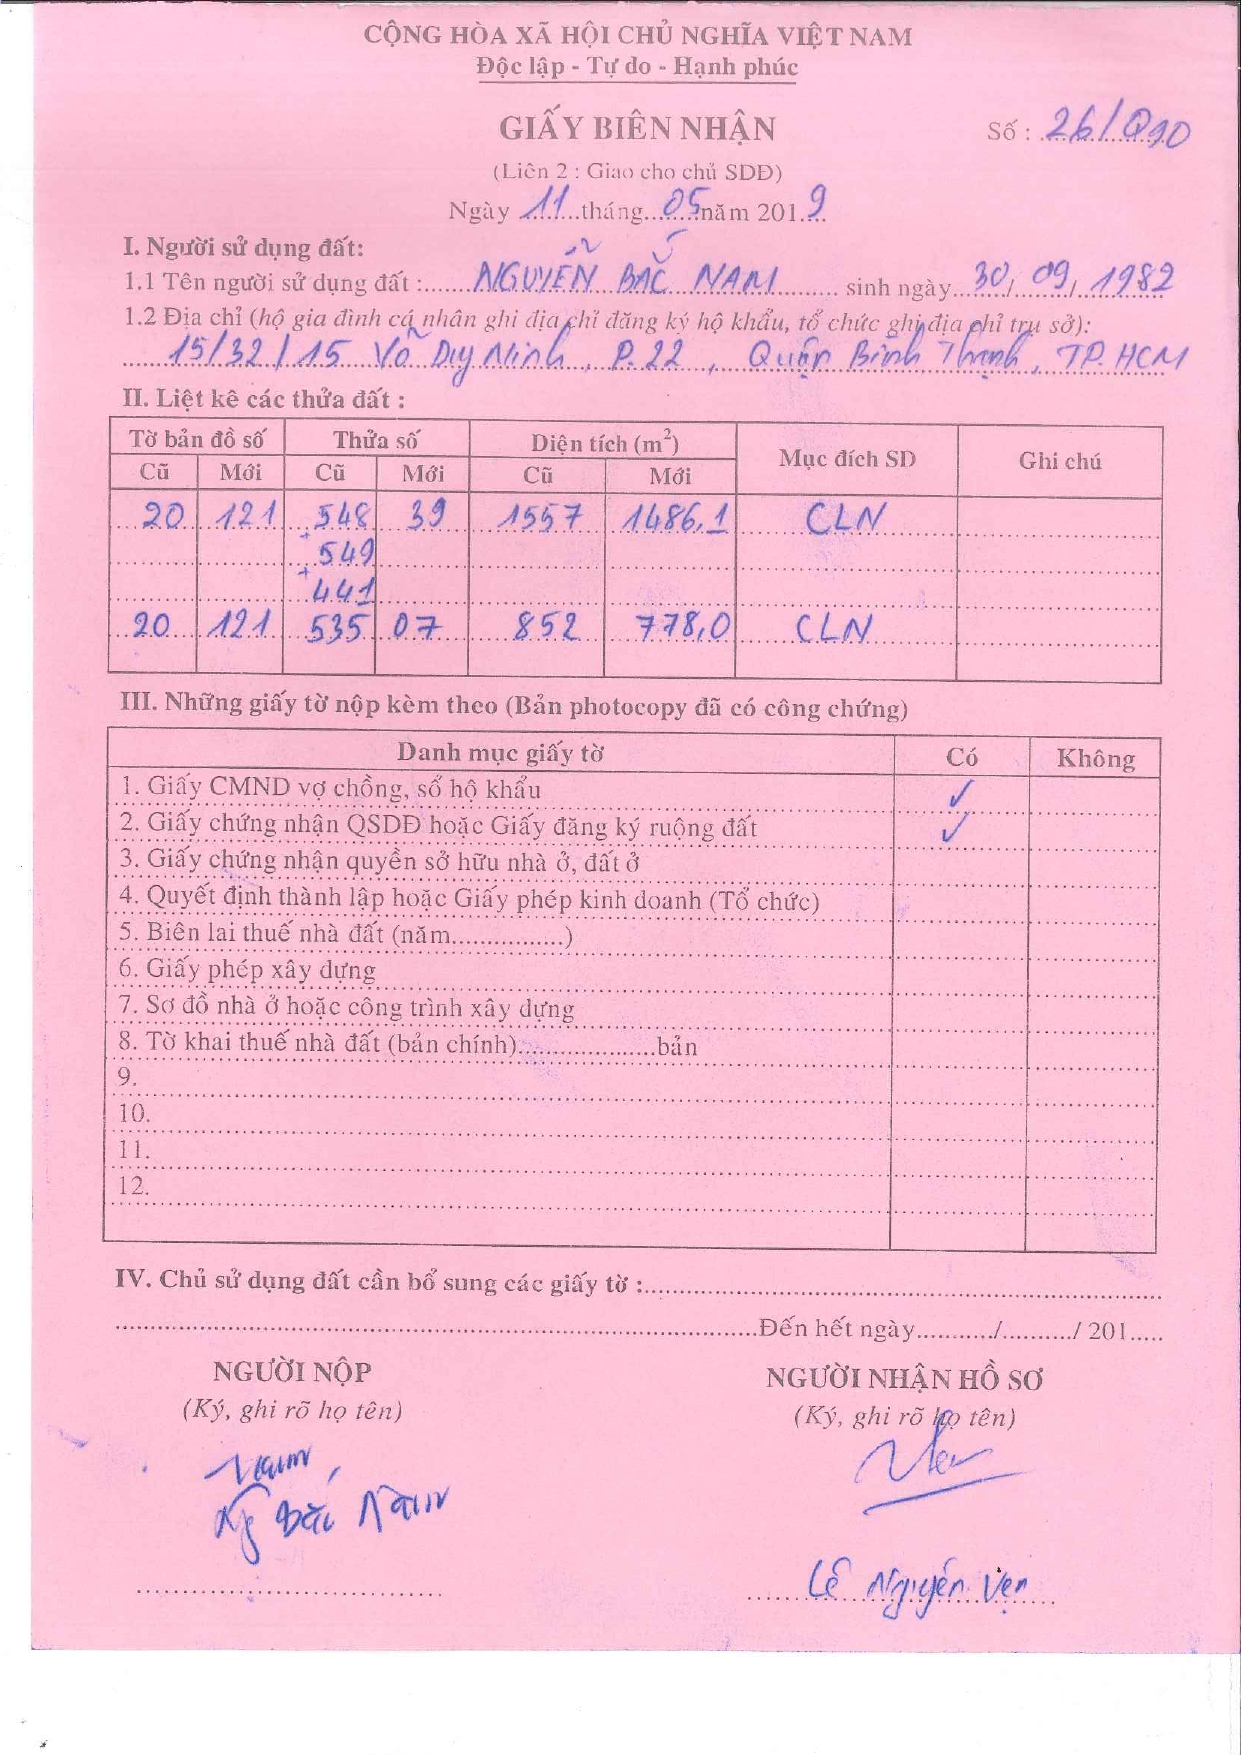 CỘNG HÒA XÃ HỘI CHỦ NGHĨA VIỆT NAM
Độc lập - Tự do - Hạnh phúc
GIẤY BIÊN NHẬN Số : 26/Q10
(Liên 2 : Giao cho chủ SDĐ)
Ngày 11 tháng 05 năm 2019
I. Người sử dụng đất:
1.1 Tên người sử dụng đất : NGUYỄN BẮC NAM sinh ngày 30/09/1982
1.2 Địa chỉ (hộ gia đình cá nhân ghi địa chỉ đăng ký hộ khẩu, tổ chức ghi địa chỉ trụ sở):
15/32/15 Võ Duy Ninh, P.22, Quận Bình Thạnh, TP.HCM
II. Liệt kê các thửa đất :
Tờ bản đồ số Thửa số Diện tích (m²) Mục đích SD Ghi chú
Cũ Mới Cũ Mới Cũ Mới
20 121 548 39 1557 1486,1 CLN
+ 549
+ 441
20 121 535 07 852 778,0 CLN
III. Những giấy tờ nộp kèm theo (Bản photocopy đã có công chứng)
Danh mục giấy tờ Có Không
1. Giấy CMND vợ chồng, sổ hộ khẩu ✓
2. Giấy chứng nhận QSDĐ hoặc Giấy đăng ký ruộng đất ✓
3. Giấy chứng nhận quyền sở hữu nhà ở, đất ở
4. Quyết định thành lập hoặc Giấy phép kinh doanh (Tổ chức)
5. Biên lai thuế nhà đất (năm...............)
6. Giấy phép xây dựng
7. Sơ đồ nhà ở hoặc công trình xây dựng
8. Tờ khai thuế nhà đất (bản chính)...................bản
9.
10.
11.
12.
IV. Chủ sử dụng đất cần bổ sung các giấy tờ :
Đến hết ngày.........../........../ 201.....
NGƯỜI NỘP NGƯỜI NHẬN HỒ SƠ
(Ký, ghi rõ họ tên) (Ký, ghi rõ họ tên)
Nam
Ng Bắc Nam
Lê Nguyên Vẹn